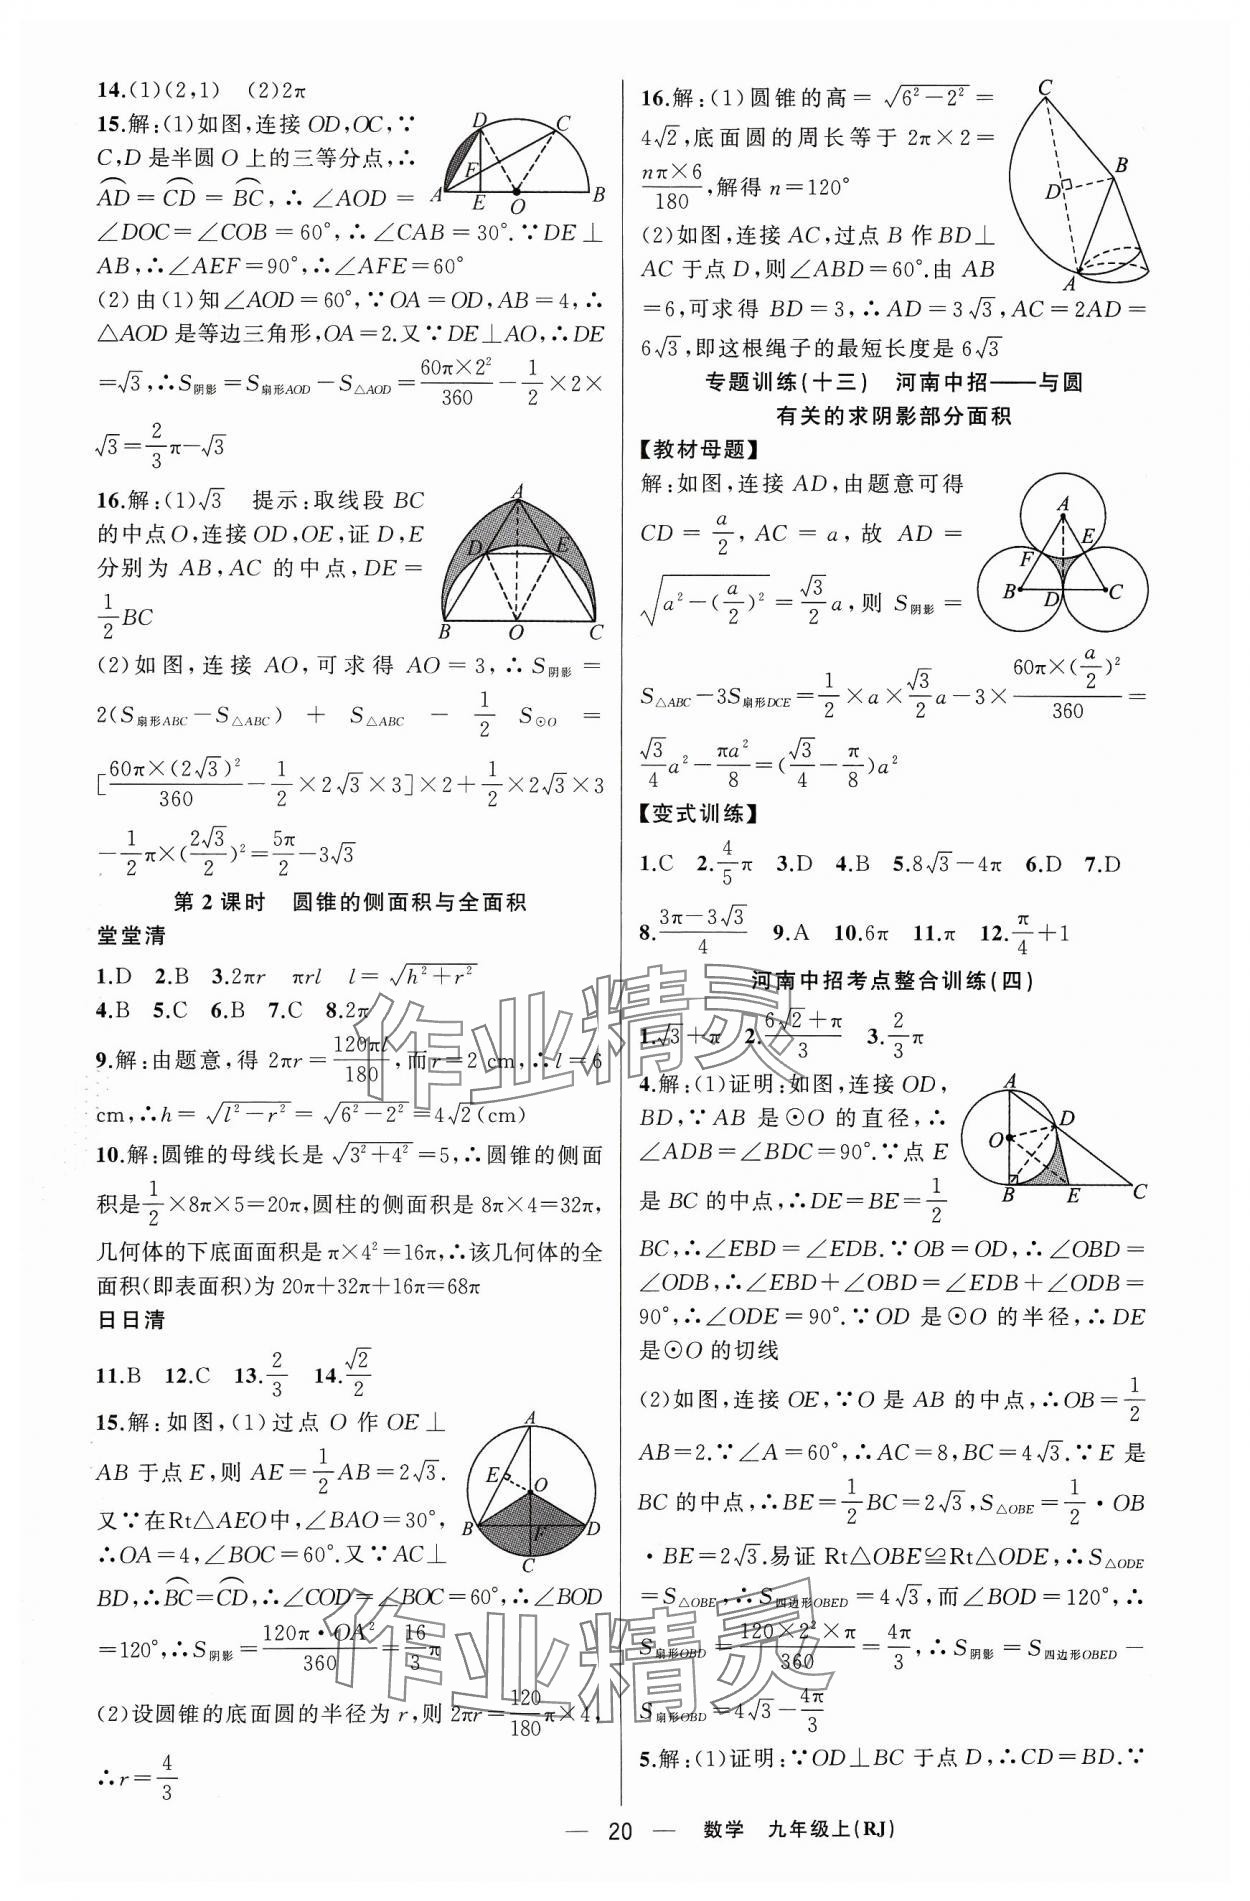 14.(1)(2,1)　(2)2π
15.解:(1)如图,连接 OD,OC,∵
C,D 是半圆 O 上的三等分点,∴
⌒AD=⌒CD=⌒BC,∴∠AOD=
∠DOC=∠COB=60°,∴∠CAB=30°.∵DE⊥
AB,∴∠AEF=90°,∴∠AFE=60°
(2)由(1)知∠AOD=60°,∵OA=OD,AB=4,∴
△AOD 是等边三角形,OA=2.又∵DE⊥AO,∴DE
=√3,∴S阴影=S扇形AOD−S△AOD=60π×2²/360−1/2×2×
√3=2/3π−√3
16.解:(1)√3　提示:取线段 BC
的中点O,连接 OD,OE,证 D,E
分别为 AB,AC 的中点,DE=
1/2BC
(2)如图,连接 AO,可求得 AO=3,∴S阴影=
2(S扇形ABC−S△ABC)+S△ABC−1/2S⊙O=
[60π×(2√3)²/360−1/2×2√3×3]×2+1/2×2√3×3
−1/2π×(2√3/2)²=5π/2−3√3
第 2 课时　圆锥的侧面积与全面积
堂堂清
1.D　2.B　3.2πr　πrl　l=√(h²+r²)
4.B　5.C　6.B　7.C　8.2π
9.解:由题意,得 2πr=120πl/180,而r=2 cm,∴l=6
cm,∴h=√(l²−r²)=√(6²−2²)=4√2(cm)
10.解:圆锥的母线长是√(3²+4²)=5,∴圆锥的侧面
积是1/2×8π×5=20π,圆柱的侧面积是 8π×4=32π,
几何体的下底面面积是π×4²=16π,∴该几何体的全
面积(即表面积)为 20π+32π+16π=68π
日日清
11.B　12.C　13.2/3　14.√2/2
15.解:如图,(1)过点 O 作 OE⊥
AB 于点 E,则 AE=1/2AB=2√3.
又∵在Rt△AEO中,∠BAO=30°,
∴OA=4,∠BOC=60°.又∵AC⊥
BD,∴⌒BC=⌒CD,∴∠COD=∠BOC=60°,∴∠BOD
=120°,∴S阴影=120π·OA²/360=16/3π
(2)设圆锥的底面圆的半径为 r,则 2πr=120/180π×4,
∴r=4/3
16.解:(1)圆锥的高=√(6²−2²)=
4√2,底面圆的周长等于 2π×2=
nπ×6/180,解得 n=120°
(2)如图,连接 AC,过点 B 作 BD⊥
AC 于点 D,则∠ABD=60°.由 AB
=6,可求得 BD=3,∴AD=3√3,AC=2AD=
6√3,即这根绳子的最短长度是 6√3
专题训练(十三)　河南中招——与圆
有关的求阴影部分面积
【教材母题】
解:如图,连接 AD,由题意可得
CD=a/2,AC=a,故 AD=
√(a²−(a/2)²)=√3/2a,则 S阴影=
S△ABC−3S扇形DCE=1/2×a×√3/2a−3×60π×(a/2)²/360=
√3/4a²−πa²/8=(√3/4−π/8)a²
【变式训练】
1.C　2.4/5π　3.D　4.B　5.8√3−4π　6.D　7.D
8.(3π−3√3)/4　9.A　10.6π　11.π　12.π/4+1
河南中招考点整合训练(四)
1.√3+π　2.(6√2+π)/3　3.2/3π
4.解:(1)证明:如图,连接 OD,
BD,∵AB 是⊙O 的直径,∴
∠ADB=∠BDC=90°.∵点 E
是 BC 的中点,∴DE=BE=1/2
BC,∴∠EBD=∠EDB.∵OB=OD,∴∠OBD=
∠ODB,∴∠EBD+∠OBD=∠EDB+∠ODB=
90°,∴∠ODE=90°.∵OD 是⊙O 的半径,∴DE
是⊙O 的切线
(2)如图,连接 OE,∵O 是 AB 的中点,∴OB=1/2
AB=2.∵∠A=60°,∴AC=8,BC=4√3.∵E 是
BC 的中点,∴BE=1/2BC=2√3,S△OBE=1/2·OB
·BE=2√3.易证 Rt△OBE≌Rt△ODE,∴S△ODE
=S△OBE,∴S四边形OBED=4√3,而∠BOD=120°,∴
S扇形OBD=120×2²×π/360=4π/3,∴S阴影=S四边形OBED−
S扇形OBD=4√3−4π/3
5.解:(1)证明:∵OD⊥BC 于点 D,∴CD=BD.∵
— 20 —　数学　九年级上(RJ)
作业精灵
作业精灵